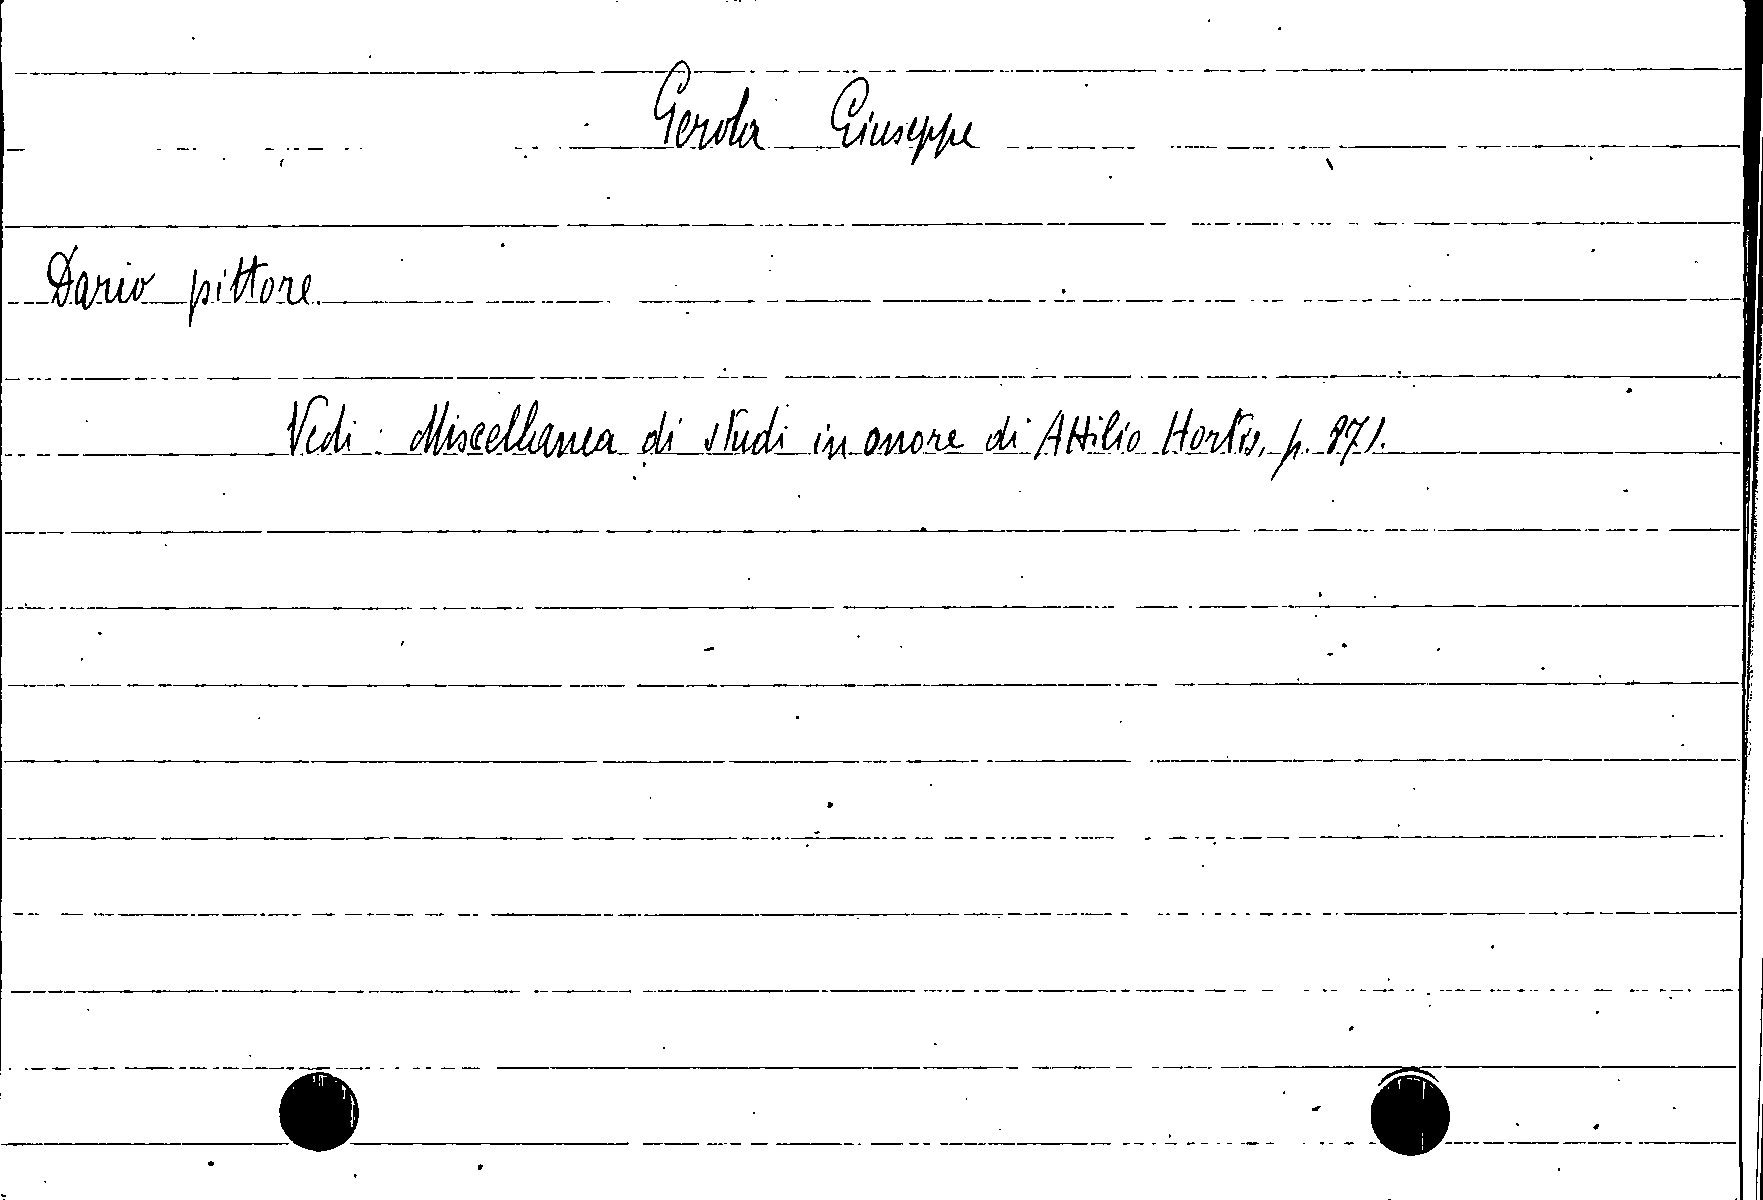 Gerola Giuseppe
Dario pittore.
Vedi: Miscellanea di studi in onore di Attilio Hortis, p. 871.